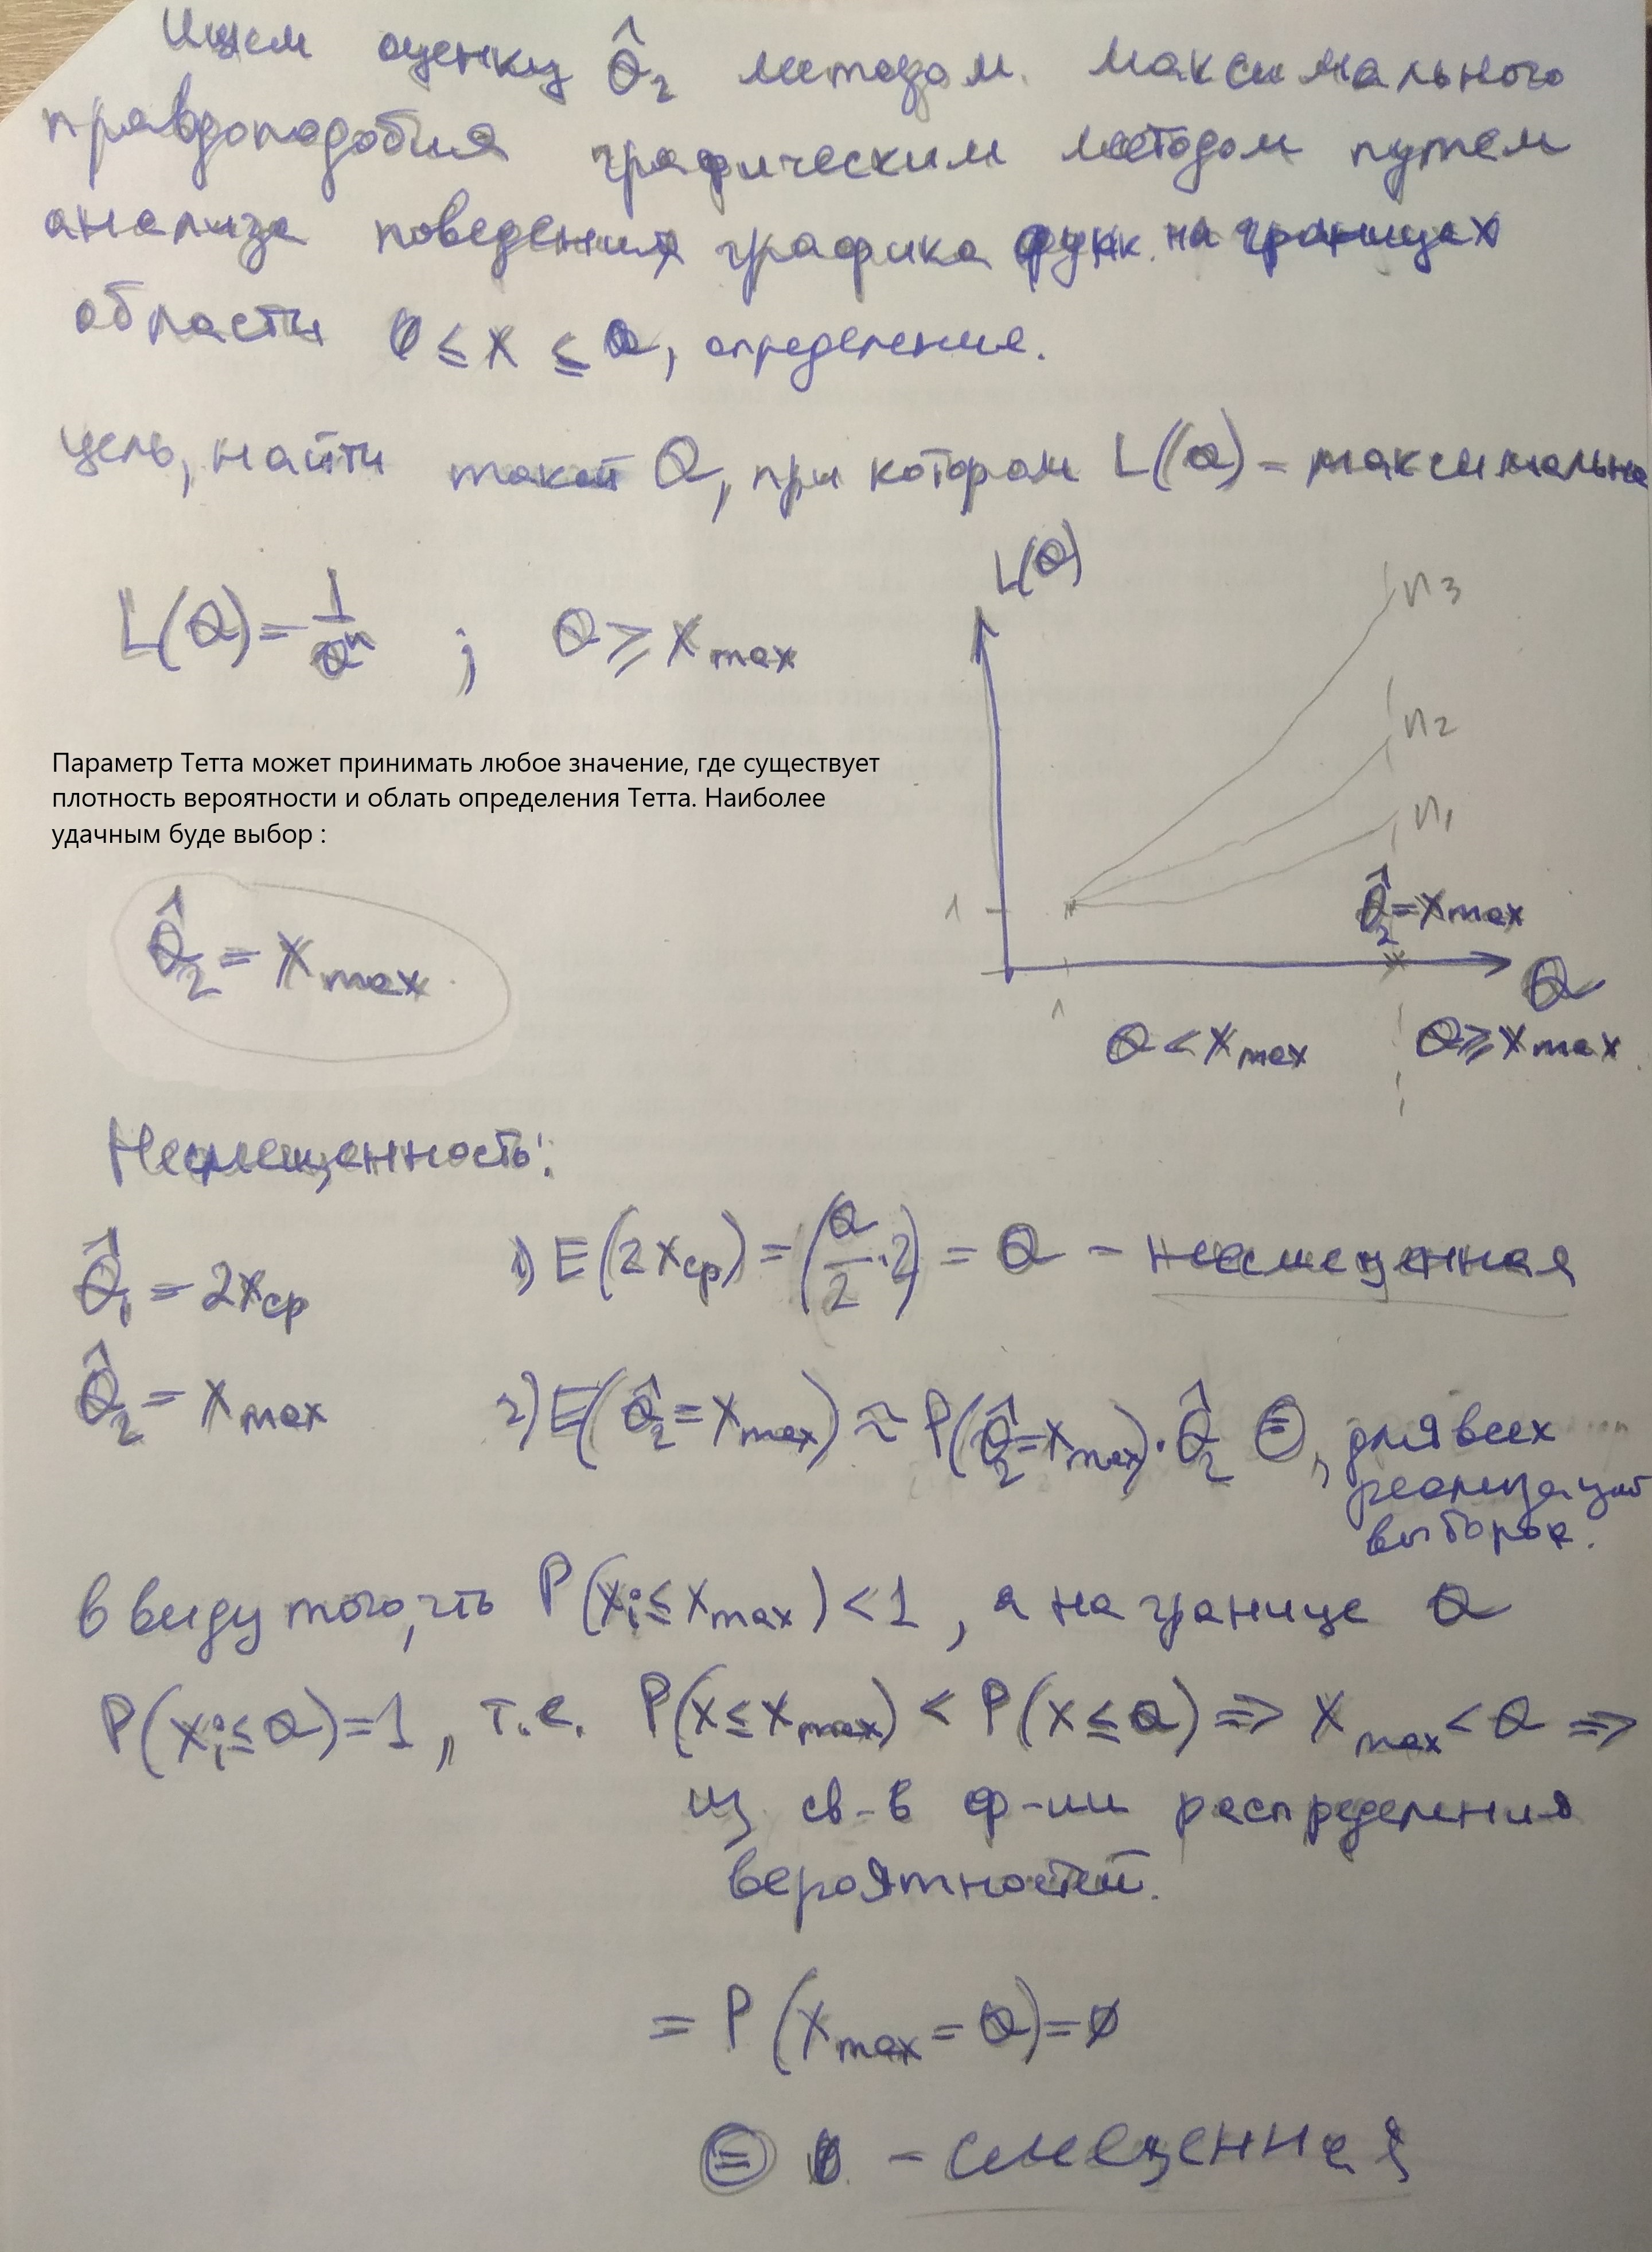 Ищем оценку θ̂₂ методом максимального
правдоподобия графическим методом путем
анализа поведения графика функ. на границах
области 0 ≤ x ≤ θ, определения.
цель, найти такой θ, при котором L(θ) - максимальна
L(θ) = 1/θⁿ ; θ ≥ x max
L(θ)
n3
n2
n1
Параметр Тетта может принимать любое значение, где существует
плотность вероятности и облать определения Тетта. Наиболее
удачным буде выбор :
1
θ̂₂ = x max
θ̂₂ = x max
θ
1
θ < x max θ ≥ x max
Несмещенность:
θ̂₁ = 2xср 1) E(2xср) = (θ/2 · 2) = θ - несмещенная
θ̂₂ = x max 2) E(θ̂₂ = x max) ≈ P(θ̂₂ = x max) · θ̂₂ ⊜, для всех
реализаций
выборок.
в виду того, что P(xi ≤ x max) < 1, а на границе θ
P(xi ≤ θ) = 1, т.е. P(x ≤ x max) < P(x ≤ θ) => x max < θ =>
из св-в ф-ии распределения
вероятностей.
= P(x max = θ) = ∅
⊜ 0 - смещенная